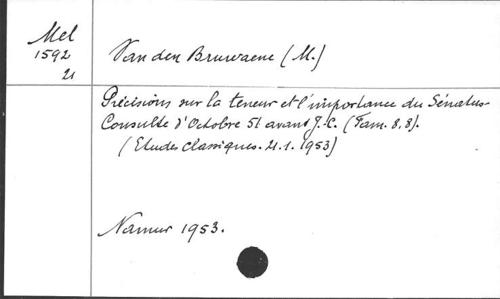 Mel
1592
21
Van den Bruwaene (M.)
Précisions sur la teneur et l'importance du Sénatus-
Consulte d'Octobre 51 avant J.-C. (Fam. 8,8).
(Etudes classiques. 21.1. 1953)
Namur 1953.